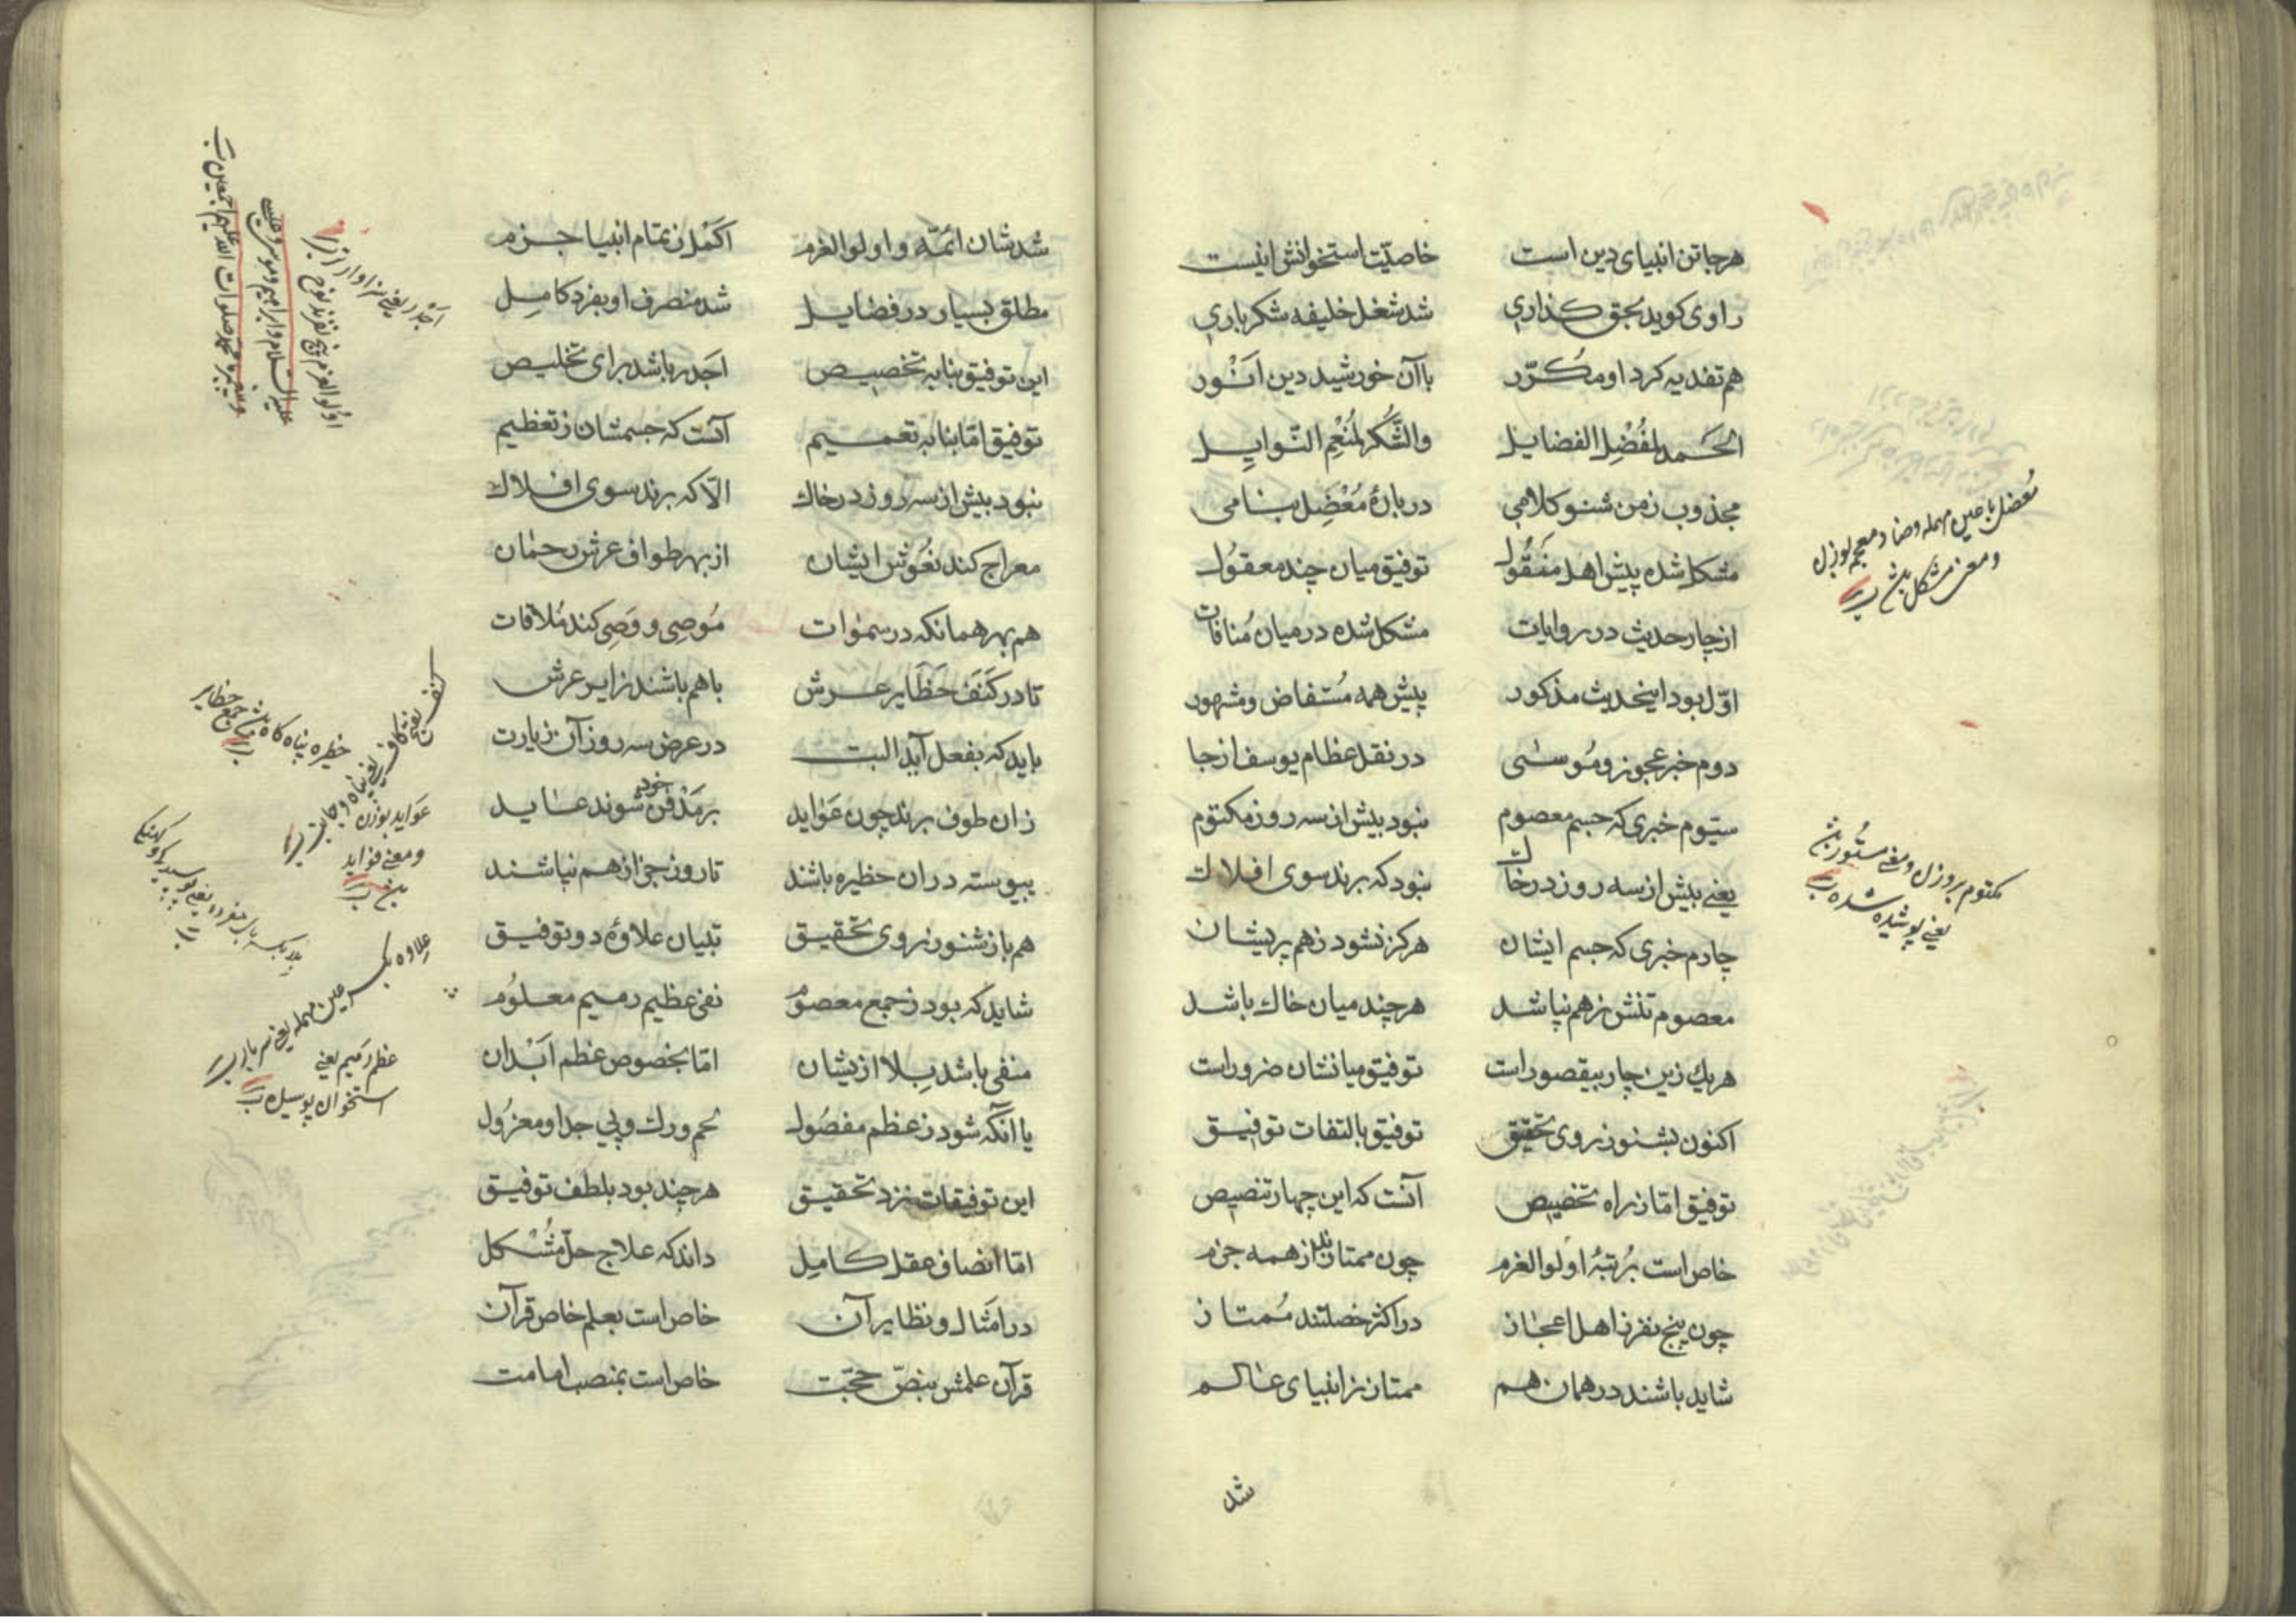 هرجا تن انبیای دین است خاصیّت استخوانش اینست
راوی کوید بحق کذاری شد شغل خلیفه شکر باری
هم تفدیه کرد او مکرّر با آن خورشید دین انور
الحَمد لمُفْضِل الفضایل والشُّکر لمُنْعِم النّوایِل
مجذوب زمن شنو کلامی دربارهٔ مُعْضِل بنامی
مشکل شده پیش اهل منقُول توفیق میان چند معقُول
از چار حدیث در روایات مشکل شده در میان مُنافات
اوّل بود اینحدیث مذکور پیش همه مُستفاض و مشهور
دوم خبر عجوز و مُوسٰی در نقل عظام یوسف از جا
سیّوم خبری که جسم معصوم نبود بیش از سه روز مکتوم
یعنی بیش از سه روز در خاک نبود که برند سوی افلاک
چارم خبری که جسم ایشان هرکز نشود زهم پریشان
معصوم تنش زهم نپاشد هرچند میان خاك باشد
هریك زین چار بیقصور است توفیق میانشان ضرور است
اکنون بشنو ز روی تحقیق توفیق بالتفات توفیق
توفیق امّا ز راه تخصیص آنست که این چهار تنصیص
خاص است برُتبهٔ اولوالعزم چون ممتازند از همه جزم
چون پنج نفر ز اهل اعجاز در اکثر خصلتند مُمتاز
شاید باشند در همان هم ممتاز ز انبیای عٰالم
شد
معضل با عین مهمله و ضاد معجمه بوزن
و معنی مشکل بش
مکتوم بر وزن و معنی مستُور بش
یعنی پوشیده شده
شد شان ائمّه و اولوالعزم اکمل ز تمام انبیا جزم
مطلق بسیار در فضایل شد منصرف او بفرد کامِل
این توفیق بنا به تخصیص اجدر باشد برای تخلیص
توفیق امّا بنا به تعمیم آنست که جسمشان ز تعظیم
نبود بیش از سه روز در خاك الّا که برند سوی افلاك
معراج کند نعُوش ایشان از بهر طواف عرش رحمٰان
هم بهر همانکه در سمٰوات مُوصِی و وَصِی کند مُلاقات
تا در کَنَف حَظَایر عرش باهم باشند زایر عرش
باید که بفعل آید البت در عرض سه روز آن زیارت
زان طوف برند چون عَوٰاید بر مَدْفن خود شوند عٰاید
پیوسته دران حظیره باشند تا روز جزا زهم نپاشند
هم باز شنو ز روی تحقیق تبیان علاوهٔ دو توفیق
شاید که بود ز جمع معصوم نفی عظیم رمیم معلُوم
منفی باشد بِلا ازیشان امّا بخصوص عظم اَبْدان
یا آنکه شود ز عظم مفصُول لحم و رك و پی جدا و معزُول
این توفیقات نزد تحقیق هرچند بود بلطف توفیق
امّا انصاف عقل کامِل داند که علاج حلّ مُشْکل
در امثال و نظایر آن خاص است بعلم خاص قرآن
قرآن علمش بنصّ حجّت خاص است بمنصب امامت
اجدر یعنی سزاوارتر
اولوالعزم پنج نفرند نوح
علیه السّلام و ابراهیم و موسی و عیسی
و پیغمبر ما محمّد صلوات الله علیهم اجمعین
عوٰاید بوزن
و معنی فواید
بش
علاوه بکسر عین مهمله یعنی سربار
عظم رمیم یعنی
استخوان پوسیده